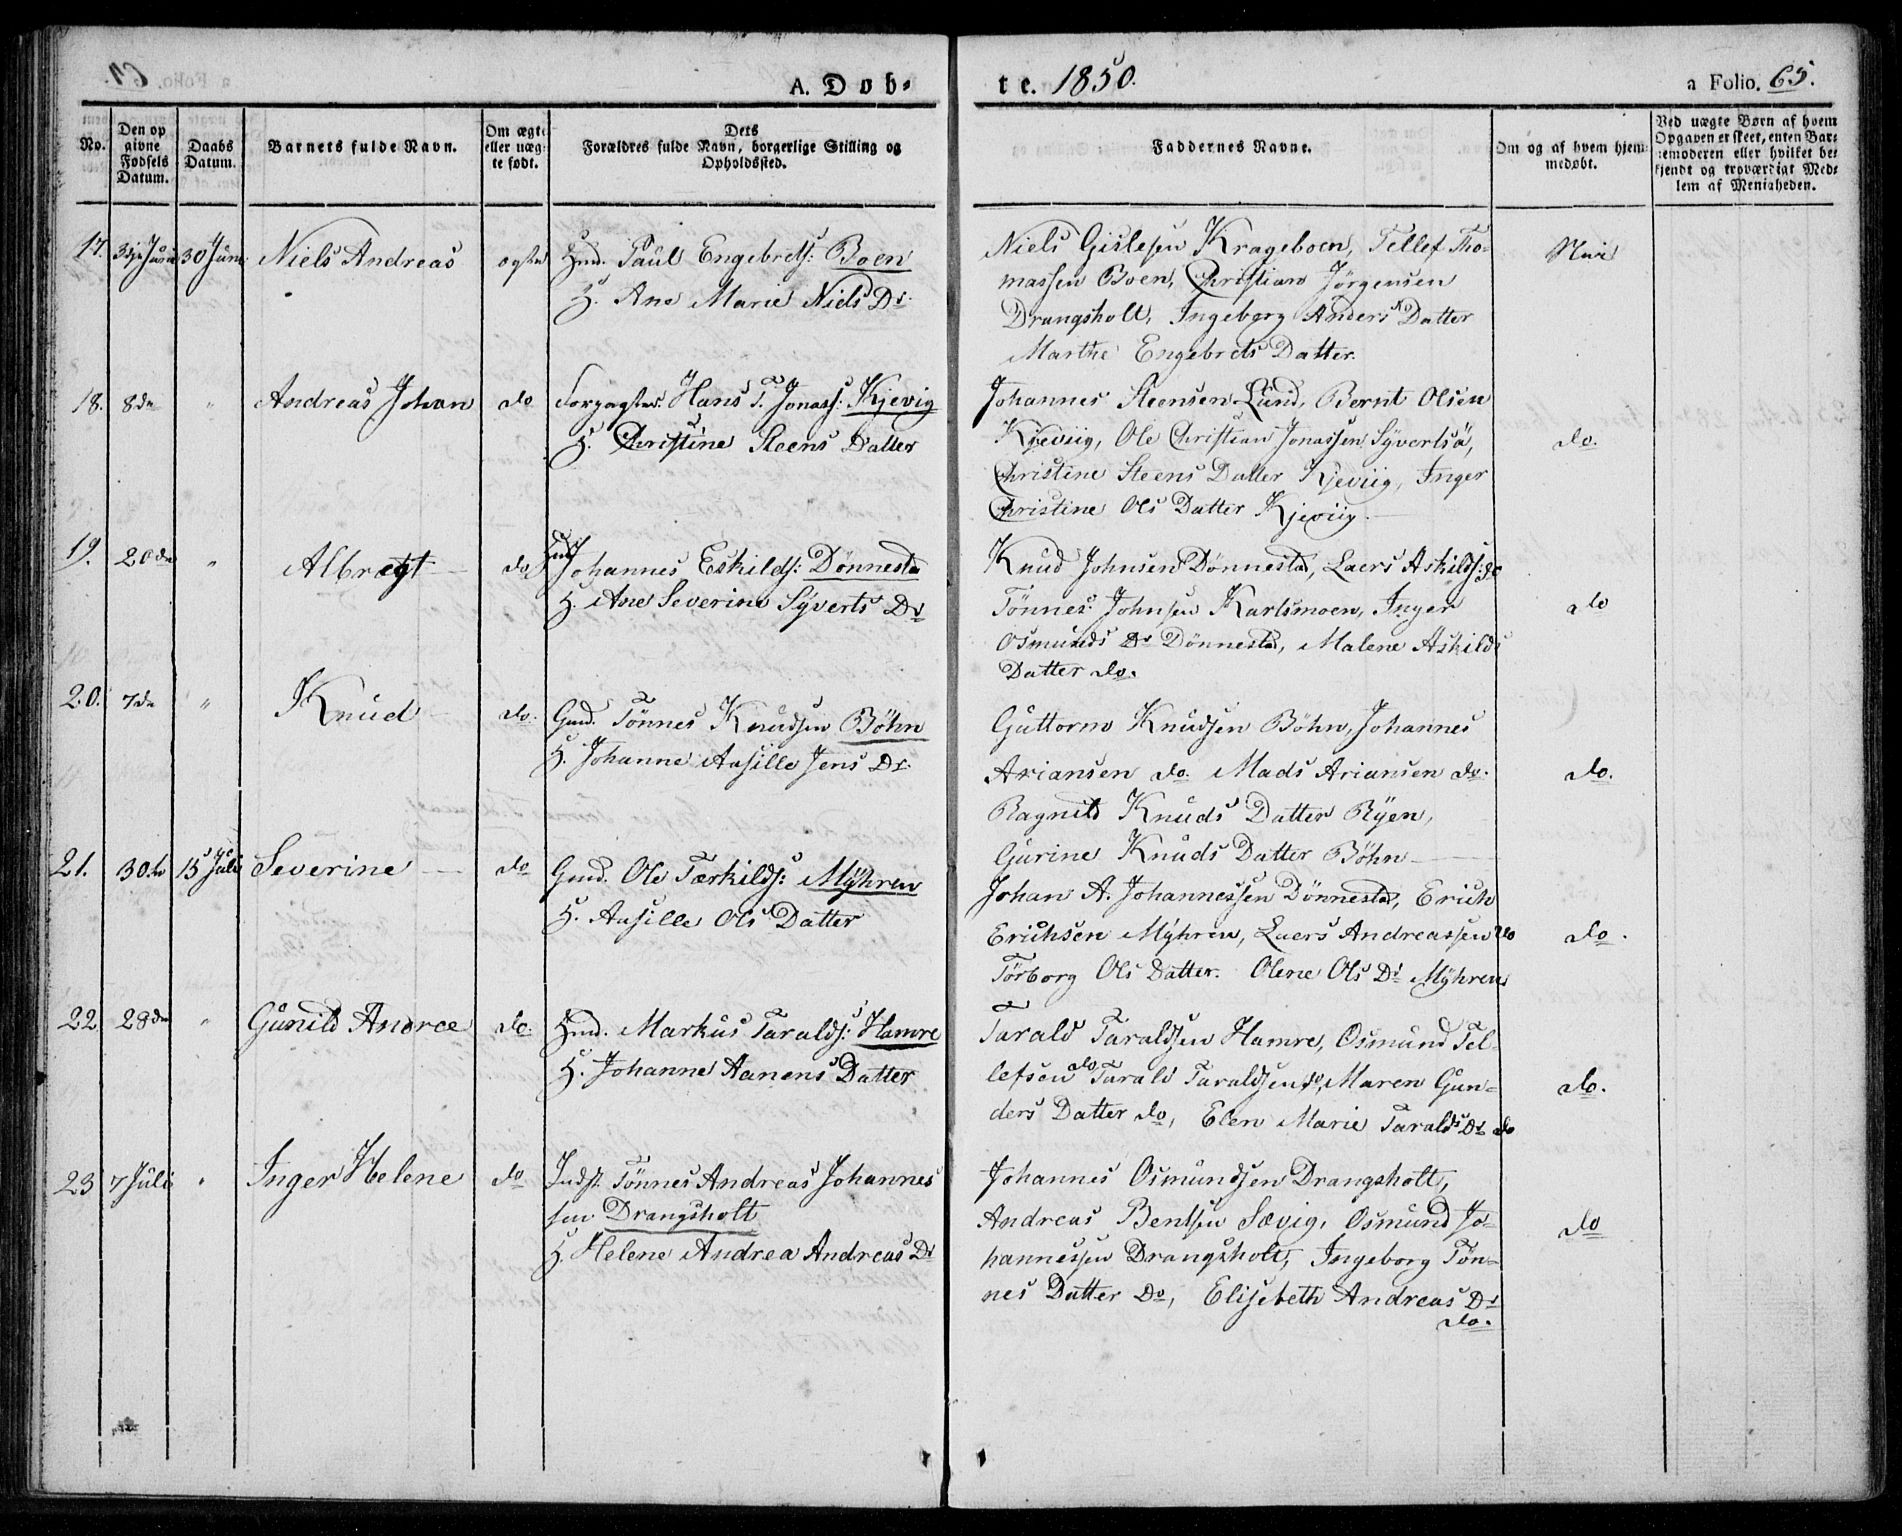 A. Døb-
te. 1850.
a Folio. 65.
No.
Den op
givne
Fødsels
Datum.
Daabs
Datum.
Barnets fulde Navn.
Om ægte
eller uæg-
te født.
Dets
Forældres fulde Navn, borgerlige Stilling og
Opholdssted.
Faddernes Navne.
Om og af hvem hjem-
medøbt.
Ved uægte Børn af hvem
Opgaven er skeet, enten Bar-
nemoderen eller hvilket be-
kjendt og troværdigt Med-
lem af Menigheden.
17. 3die Juni 30 Juni Niels Andreas ægte Gmd. Paul Engebrets: Boen
H. Ane Marie Niels Dr.
Niels Gislesen Krageboen, Tellef Tho-
massen Boen, Christian Jörgensen
Drangsholt, Ingeborg Anders Datter
Marthe Engebrets Datter.
Nei
18. 8de " Andreas Johan do Forpagter Hans T. Jonass: Kjevig
H. Christine Steens Datter
Johannes Steensen Lund, Bernt Olsen
Kjeviig, Ole Christian Jonassen Syvertsö,
Christine Steens Datter Kjeviig, Inger
Christine Ols Datter Kjeviig
do.
19. 20de " Albregt do Johannes Eskilds: Dönnestad
H. Ane Severine Syverts Dr
Knud Johnsen Dönnestad, Laers Askilds: do
Tönnes Johnsen Karlsmoen, Inger
Osmunds Dr Dönnestad, Malene Askilds
Datter do.
do
20. 7de " Knud do. Gmd. Tönnes Knudsen Böhn
H. Johanne Assille Jens Dr.
Guttorm Knudsen Böhn, Johannes
Ariansen do. Mads Ariansen do.
Ragnild Knuds Datter Ryen,
Gurine Knuds Datter Böhn
do.
21. 30te 15 Juli Severine do Gmd. Ole Tærkilds: Myhren
H. Assille Ols Datter
Johan A. Johannessen Dönnestad, Erich
Erichsen Myhren, Laers Andreassen do
Törborg Ols Datter. Olene Ols Dr Myhren
do.
22 28de " Gunild Andrea do. Gmd. Markus Taralds: Hamre
H. Johanne Aanens Datter
Tarald Taraldsen Hamre, Osmund Tel-
lefsen do Tarald Taraldsen do, Maren Gun-
ders Datter do, Elen Marie Taralds Dr do
do.
23 7 Juli " Inger Helene do Indst. Tönnes Andreas Johannes
sen Drangsholt
H. Helene Andrea Andreas Dr
Johannes Osmundsen Drangsholt,
Andreas Bentsen Sævig, Osmund Jo-
hannessen Drangsholt, Ingeborg Tön-
nes Datter Do, Elisebeth Andreas Dr
do.
do